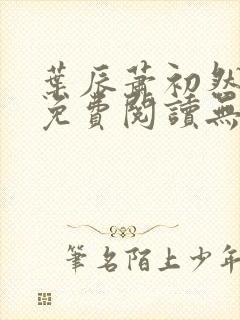 葉辰蕭初然
免費閱讀無
筆名陌上少年